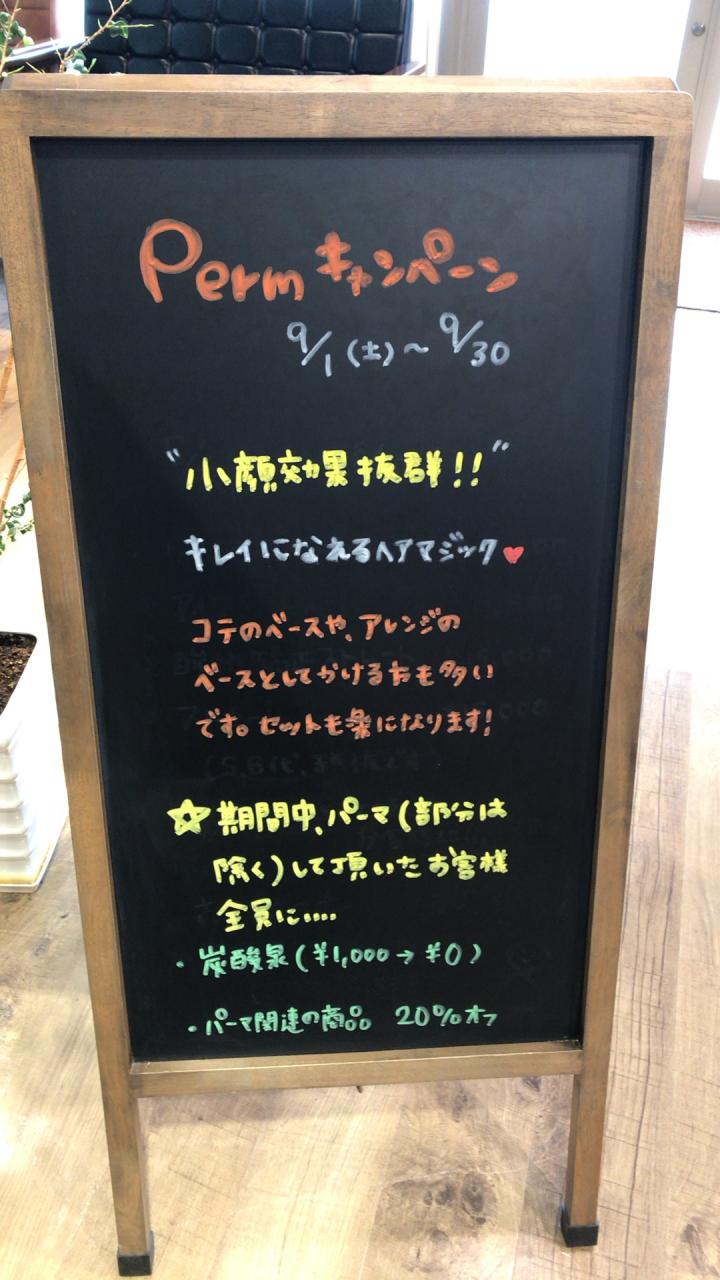 Perm キャンペーン
9/1(土)〜9/30
"小顔効果抜群!!"
キレイになれるヘアマジック♥
コテのベースや、アレンジの
ベースとしてかける方も多い
です。セットも楽になります!
☆期間中、パーマ(部分は
除く)して頂いたお客様
全員に....
・炭酸泉(¥1,000→¥0)
・パーマ関連の商品 20%オフ